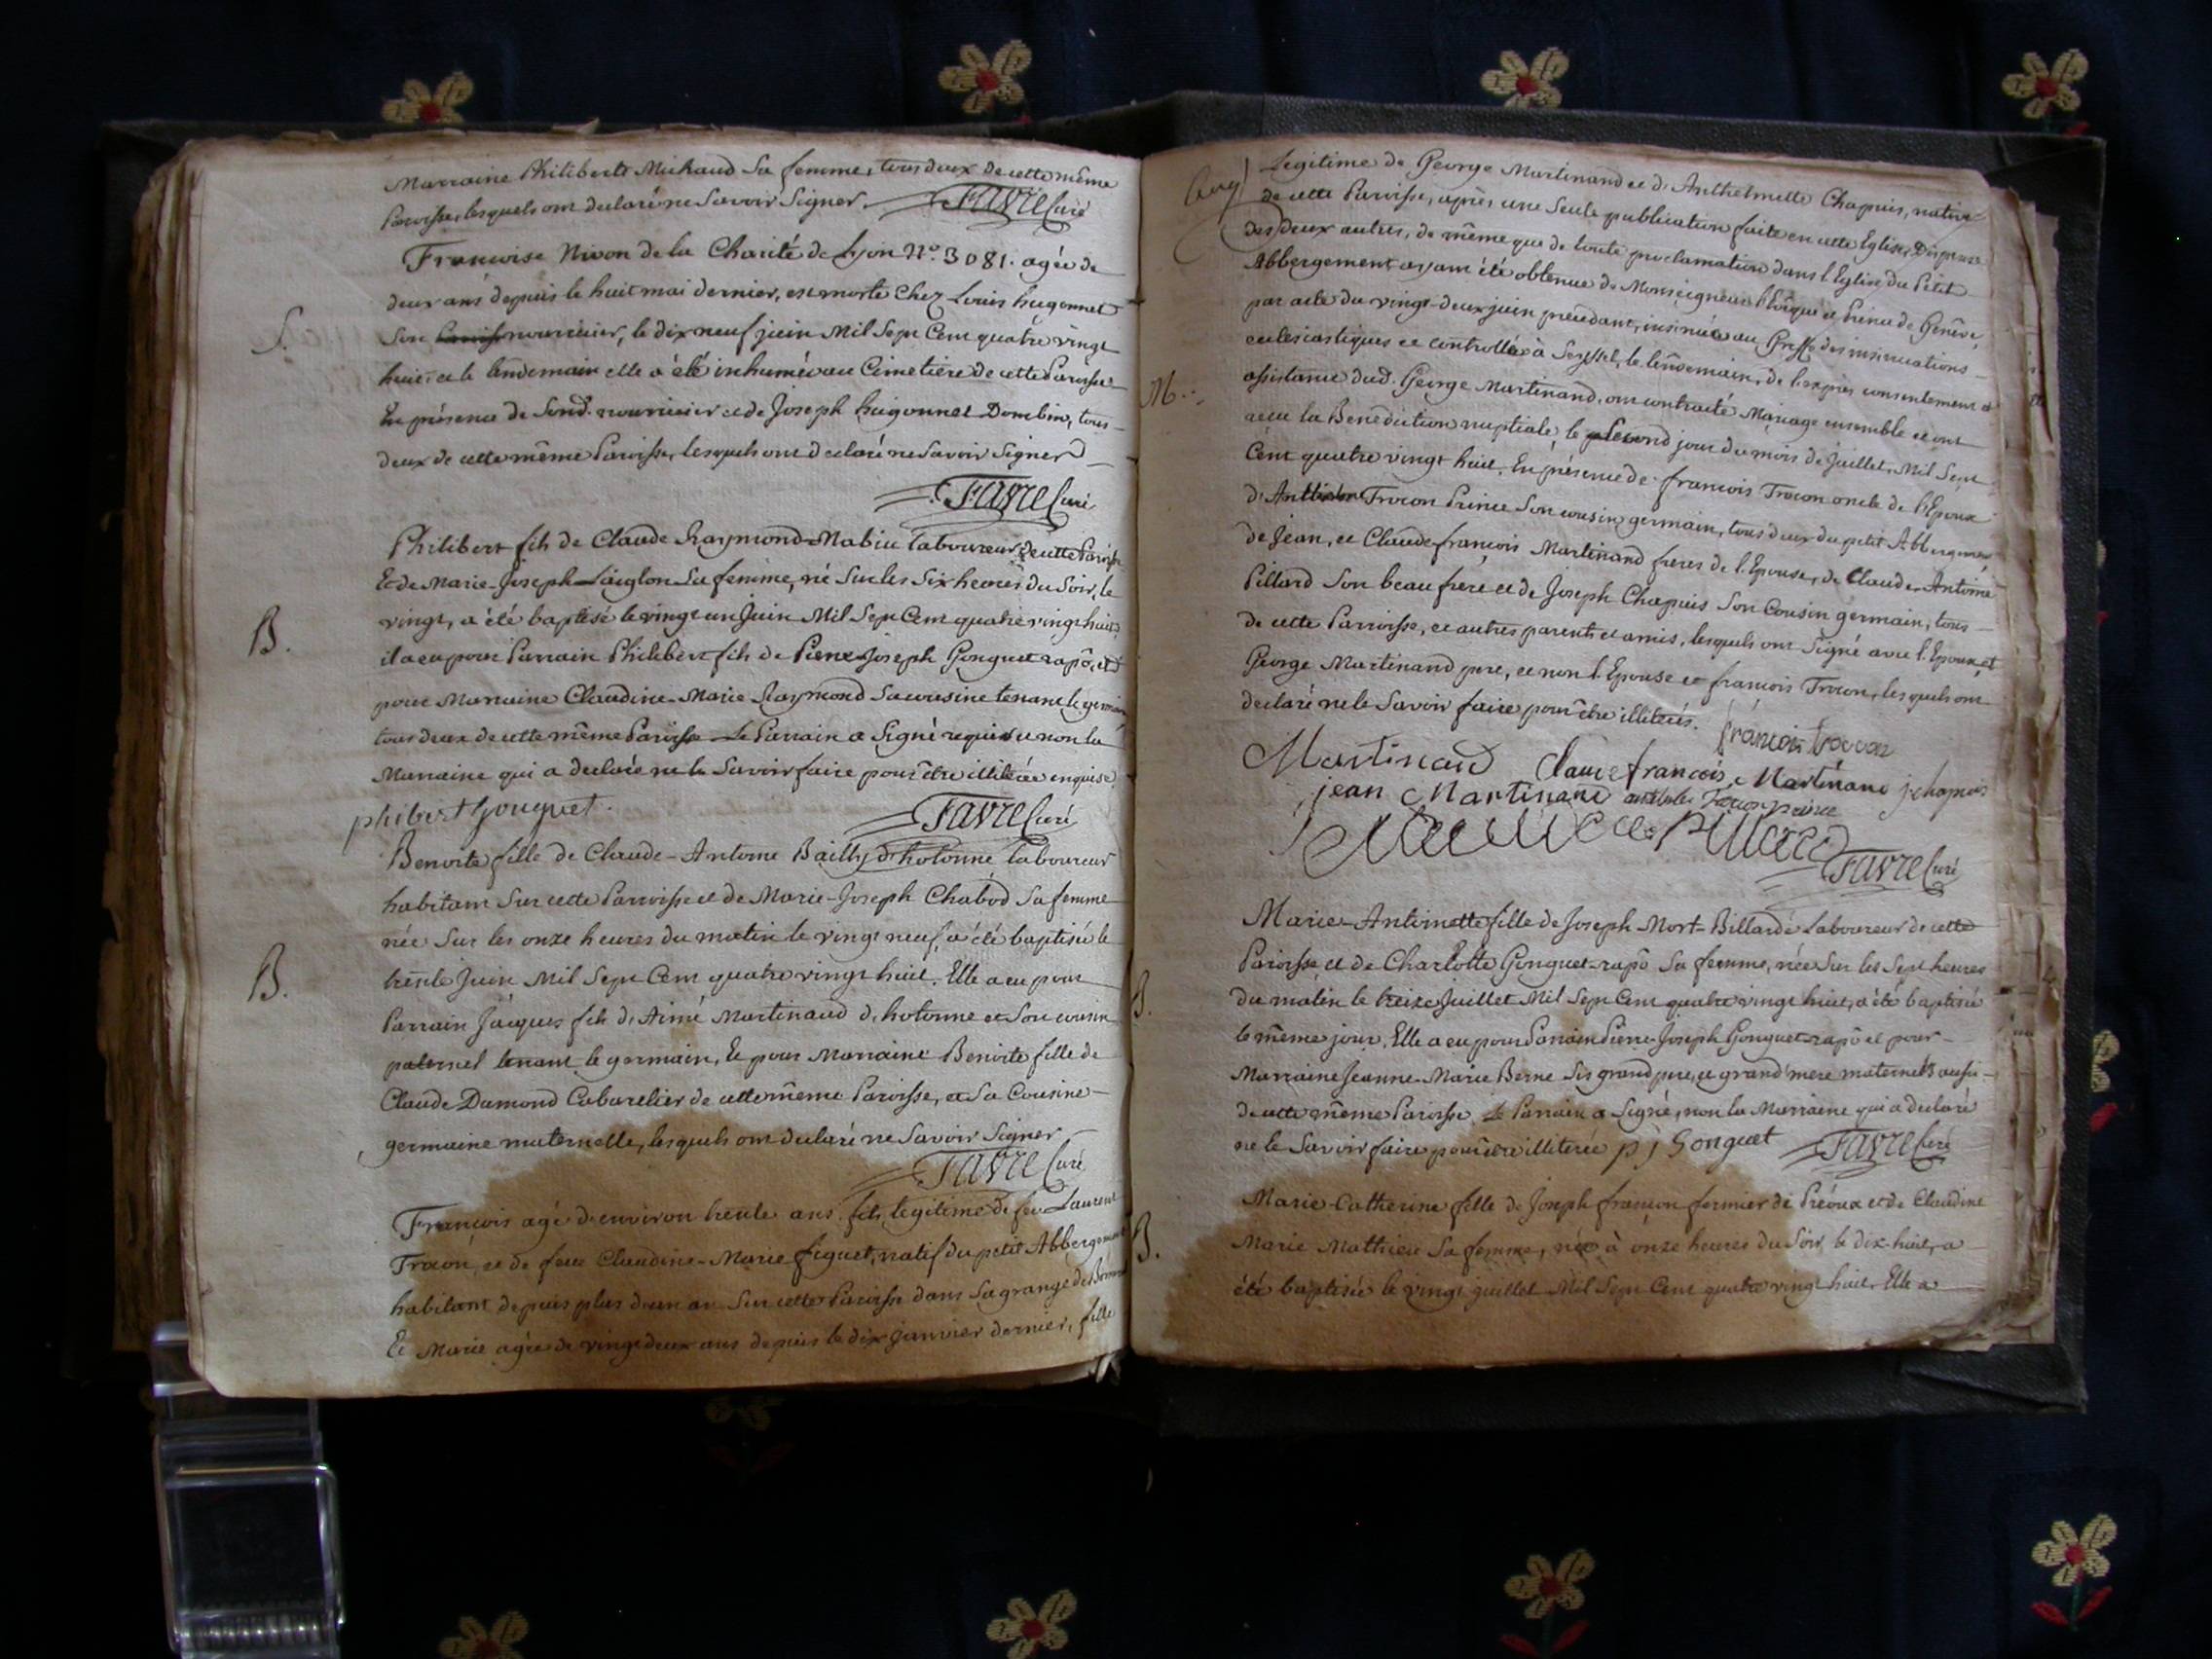 Marraine Philiberte Michaud Sa femme, tous deux de cette même
Paroisse, lesquels ont declaré ne Savoir Signer. Favre Curé
S.
Francoise Nivon de la Charité de Lyon N.º 3081. agée de
deux ans depuis le huit mai dernier, est morte Chez Louis hugonnet
Son nourricier, le dix neuf juin Mil Sept Cent quatre vingt
huit, et le lendemain elle a été inhumée au Cimetière de cette Paroisse
En présence de Sond. nourricier et de Joseph hugonnet Dombin, tous
deux de cette même Paroisse, lesquels ont declaré ne Savoir Signer
Favre Curé
B.
Philibert fils de Claude Raymond-Mabiu laboureur de cette Paroisse
Et de Marie-Joseph Laiglon Sa femme, né Sur les Six heures du Soir, le
vingt, a été baptisé le vingt un Juin Mil Sept Cent quatre vingt huit,
il a eu pour Parrain Philibert fils de Pierre-Joseph Gonguet rapô, et
pour Marraine Claudine-Marie Raymond Sa cousine tenant le germain,
tous deux de cette même Paroisse. Le Parrain a Signé requis et non la
Marraine qui a declaré ne le Savoir faire pour être illiterée enquise.
phibert Gonguet. Favre Curé
B.
Benoite fille de Claude-Antoine Bailly d'hotonne laboureur
habitant Sur cette Parroisse et de Marie-Joseph Chabod Sa femme
née Sur les onze heures du matin le vingt neuf, a été baptisée le
trente Juin Mil Sept Cent quatre vingt huit. Elle a eu pour
Parrain Jacques fils d'Aimé Martinand d'hotonne et Son cousin
paternel tenant le germain, Et pour Marraine Benoite fille de
Claude Dumond Cabaretier de cette même Paroisse, et Sa Cousine
germaine maternelle, lesquels ont declaré ne Savoir Signer
Favre Curé
Francois agé d'environ trente ans fils legitime de feu Laurent
Trocon, et de feue Claudine-Marie figuet, natif du petit Abbergement
habitant depuis plus d'un an Sur cette Paroisse dans Sa grange de
Et Marie agée de vingt deux ans depuis le dix Janvier dernier, fille
Legitime de George Martinand et d'Anthelmette Chapuis, native
de cette Paroisse, après une Seule publication faite en cette Eglise, Dispense
des deux autres, de même que de toute proclamation dans l'Eglise du Petit
Abbergement ayant été obtenue de Monseigneur l'Evêque et Prince de Genêve,
par acte du vingt-deux juin precedant, insinuée au Greffe des insinuations
ecclesiastiques et controllée à Seyssel, le lendemain, de l'exprès consentement et
M.
assistance dud. George Martinand, ont contracté Mariage ensemble et ont
recu la Benediction nuptiale, le Second jour du mois de Juillet, Mil Sept
Cent quatre vingt huit, En présence de francois Trocon oncle de l'Epoux
d' Trocon Prince Son cousin germain, tous deux du petit Abbergement,
de Jean, et Claude francois Martinand freres de l'Epouse, de Claude-Antoine
Pillard Son beau frere et de Joseph Chapuis Son Cousin germain, tous
de cette Parroisse, et autres parents et amis, lesquels ont Signé avec l'Epoux, et
George Martinand pere, et non l'Epouse et francois Trocon, lesquels ont
declaré ne le Savoir faire pour être illiterés. francois trocon
Martinand Claude francois Martinand j chapuis
jean Martinand Trocon prince
Favre Curé
B.
Marie-Antoinette fille de Joseph Mort-Billarde Laboureur de cette
Paroisse et de Charlotte Gonguet-rapô Sa femme, née Sur les Sept heures
du matin le treize Juillet Mil Sept Cent quatre vingt huit, a été baptisée
le même jour. Elle a eu pour Parrain Pierre-Joseph Gonguet-rapô et pour
Marraine Jeanne-Marie Berne Ses grand pere, et grand'mere maternels aussi
de cette même Paroisse. Le Parrain a Signé, non la Marraine qui a declaré
ne le Savoir faire pour être illiterée p j Gonguet Favre Curé
B.
Marie-Catherine fille de Joseph francon fermier de Préoux et de Claudine
Marie Mathieu Sa femme, née à onze heures du Soir le dix-huit, a
été baptisée le vingt juillet Mil Sept Cent quatre vingt huit. Elle a